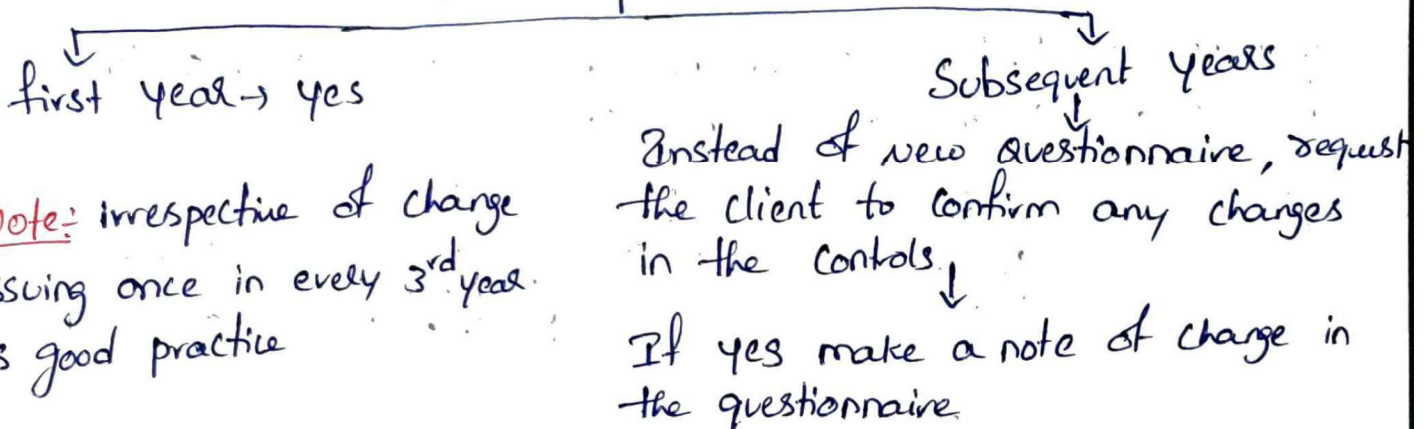 first year → yes
Note: irrespective of change
issuing once in every 3rd year.
is good practice
Subsequent years
Instead of New Questionnaire, request
the client to Confirm any changes
in the Controls.
If yes make a note of change in
the questionnaire.